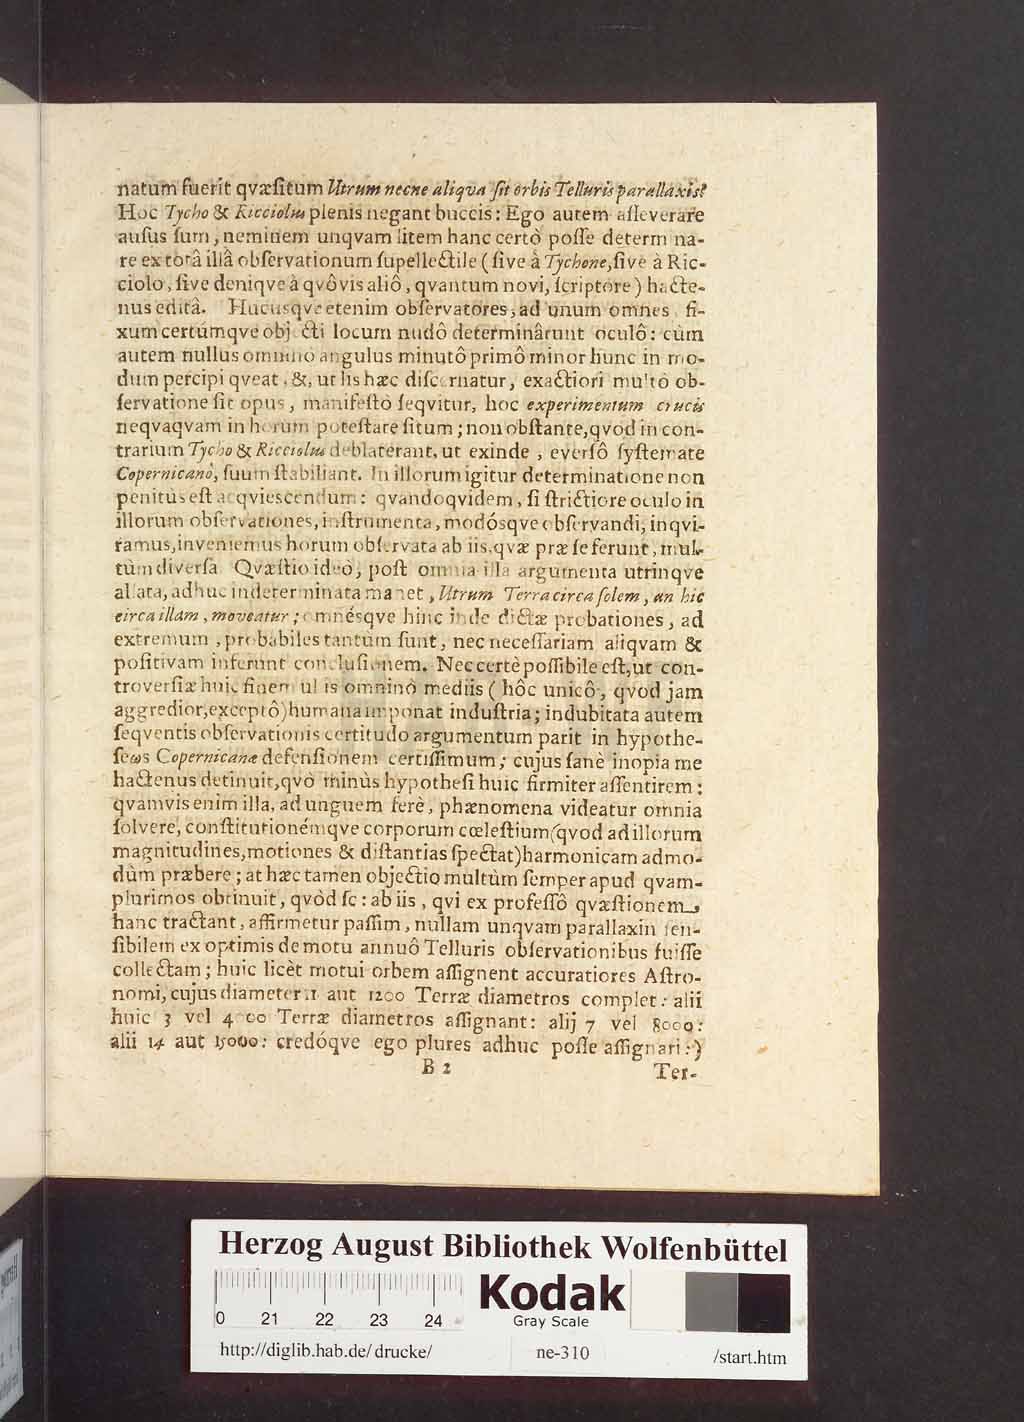 natum fuerit qvæſitum Utrum necne aliqva ſit orbis Telluris parallaxis?
Hoc Tycho & Ricciolus plenis negant buccis: Ego autem aſſeverare
auſus ſum, neminem unqvam litem hanc certò poſſe determina-
re ex totâ illâ obſervationum ſupellectile (ſive à Tychone, ſive à Ric-
ciolo, ſive deniqve à qvôvis aliô, qvantum novi, ſcriptore) hacte-
nus editâ. Hucusqve etenim obſervatores, ad unum omnes, fi-
xum certúmqve objecti locum nudô determinârunt oculô: cùm
autem nullus omninò angulus minutô primô minor hunc in mo-
dum percipi qveat, &, ut lis hæc diſcernatur, exactiori multò ob-
ſervatione ſit opus, manifeſtò ſeqvitur, hoc experimentum crucis
neqvaqvam in horum poteſtate ſitum; non obſtante, qvod in con-
trarium Tycho & Ricciolus deblaterant, ut exinde, everſô ſyſtemate
Copernicanô, ſuum ſtabiliant. In illorum igitur determinatione non
penitùs eſt acqvieſcendum: qvandoqvidem, ſi ſtrictiore oculo in
illorum obſervationes, inſtrumenta, modósqve obſervandi, inqvi-
ramus, inveniemus horum obſervata ab iis, qvæ præ ſe ferunt, mul-
tùm diverſa. Qvæſtio ideò, poſt omnia illa argumenta utrinqve
allata, adhuc indeterminata manet, Utrum Terra circa ſolem, an hic
circa illam, moveatur; omnésqve hinc inde dictæ probationes, ad
extremum, probabiles tantùm ſunt, nec neceſſariam aliqvam &
poſitivam inferunt concluſionem. Nec certè poſſibile eſt, ut con-
troverſiæ huic finem ullis omninò mediis (hôc unicô, qvod jam
aggredior, exceptô) humana imponat induſtria; indubitata autem
ſeqventis obſervationis certitudo argumentum parit in hypothe-
ſeωs Copernicanæ defenſionem certiſſimum; cujus ſanè inopia me
hactenus detinuit, qvò minùs hypotheſi huic firmiter aſſentirem:
qvamvis enim illa, ad unguem ferè, phænomena videatur omnia
ſolvere, conſtitutionémqve corporum cœleſtium (qvod ad illorum
magnitudines, motiones & diſtantias ſpectat) harmonicam admo-
dùm præbere; at hæc tamen objectio multùm ſemper apud qvam-
plurimos obtinuit, qvòd ſc: ab iis, qvi ex profeſſô qvæſtionem,
hanc tractant, affirmetur paſſim, nullam unqvam parallaxin ſen-
ſibilem ex optimis de motu annuô Telluris obſervationibus fuiſſe
collectam; huic licèt motui orbem aſſignent accuratiores Aſtro-
nomi, cujus diameter 11 aut 1200 Terræ diametros complet: alii
huic 3 vel 4000 Terræ diametros aſſignant: alij 7 vel 8000:
alii 14 aut 15000: credóqve ego plures adhuc poſſe aſſignari:)
B 2
Ter-
Herzog August Bibliothek Wolfenbüttel
Kodak
Gray Scale
0 21 22 23 24
http://diglib.hab.de/drucke/
ne-310
/start.htm